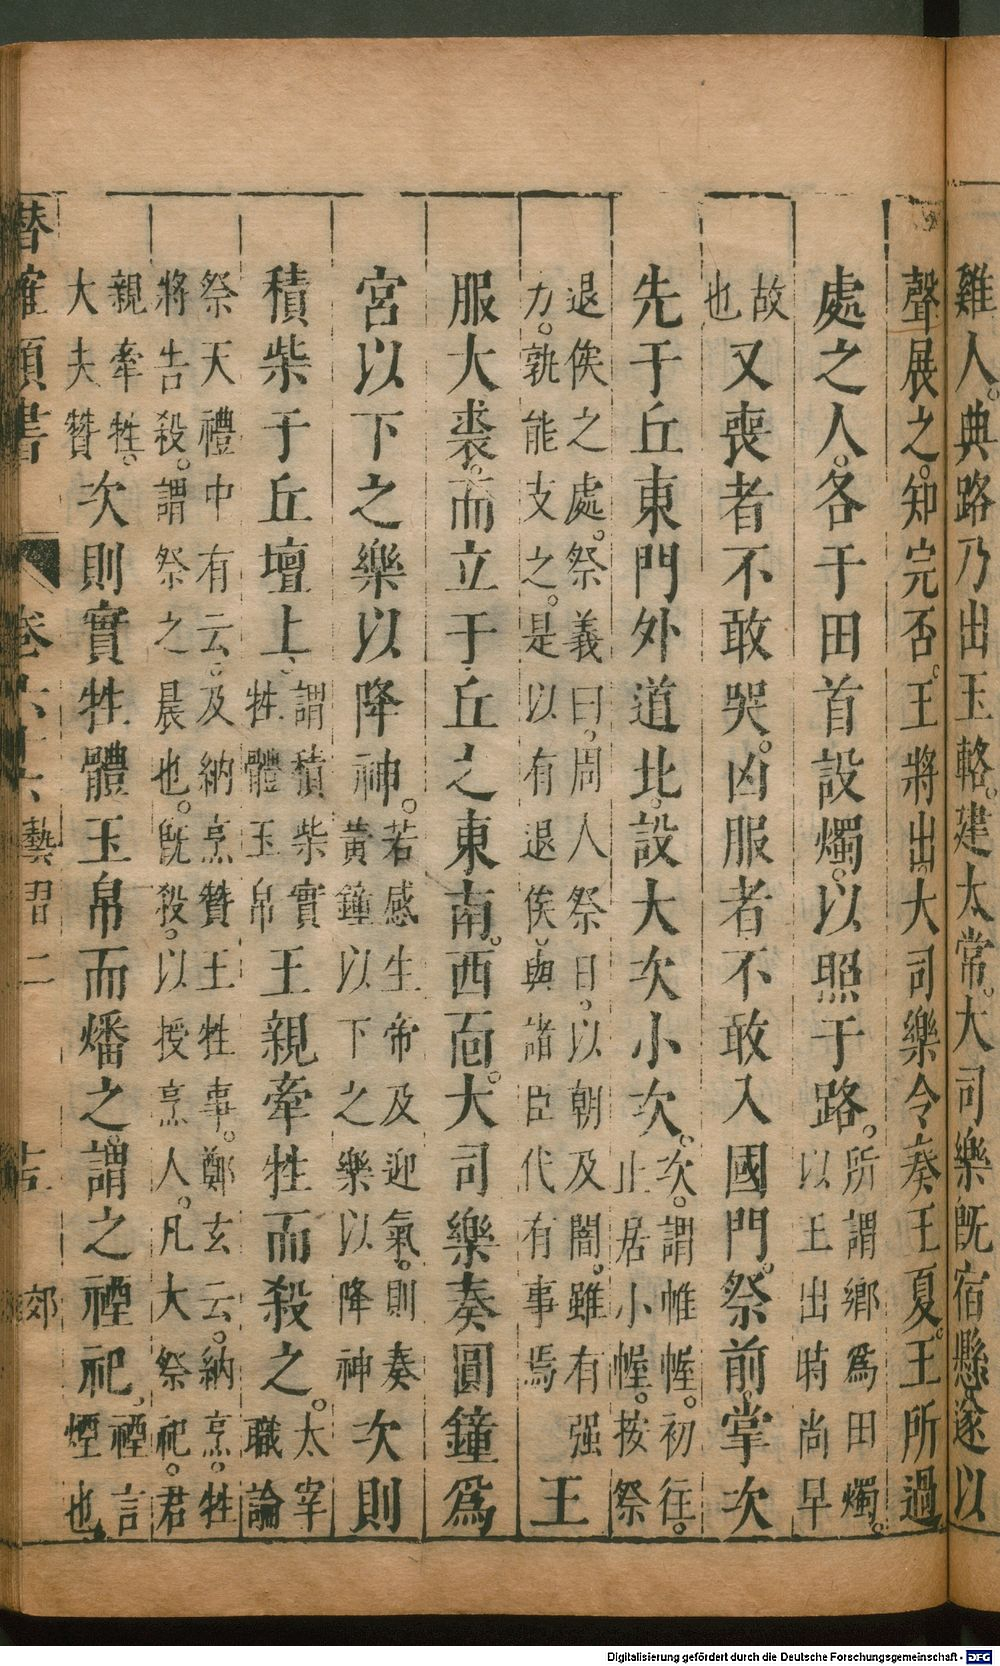 雞人。典路乃出玉輅。建太常。大司樂旣宿懸。遂以
聲展之。知完否。王將出。大司樂令奏王夏。王所過
處之人。各于田首設燭。以照于路。所謂鄉爲田燭。
以王出時尚早
故
也
又喪者不敢哭。凶服者不敢入國門。祭前。掌次
先于丘東門外道北。設大次小次。次。謂帷幄。初往。
止居小幄。按祭
退俟之處。祭義曰。周人祭日。以朝及闇。雖有强
力。孰能支之。是以有退俟。與諸臣代有事焉
王
服大裘。而立于丘之東南。西面。大司樂奏圜鐘爲
宮以下之樂以降神。若感生帝及迎氣。則奏
黃鐘以下之樂以降神
次則
積柴于丘壇上。謂積柴實
牲體玉帛
王親牽牲而殺之。太宰
職論
祭天禮中有云。及納烹贊王牲事。鄭玄云。納烹。牲
將告殺。謂祭之晨也。旣殺。以授烹人。凡大祭祀。君
親牽牲。
大夫贊
次則實牲體玉帛而燔之。謂之禋祀。禋言
煙也
潛確類書
卷六十六
藝習二
吉
郊
Digitalisierung gefördert durch die Deutsche Forschungsgemeinschaft - DFG